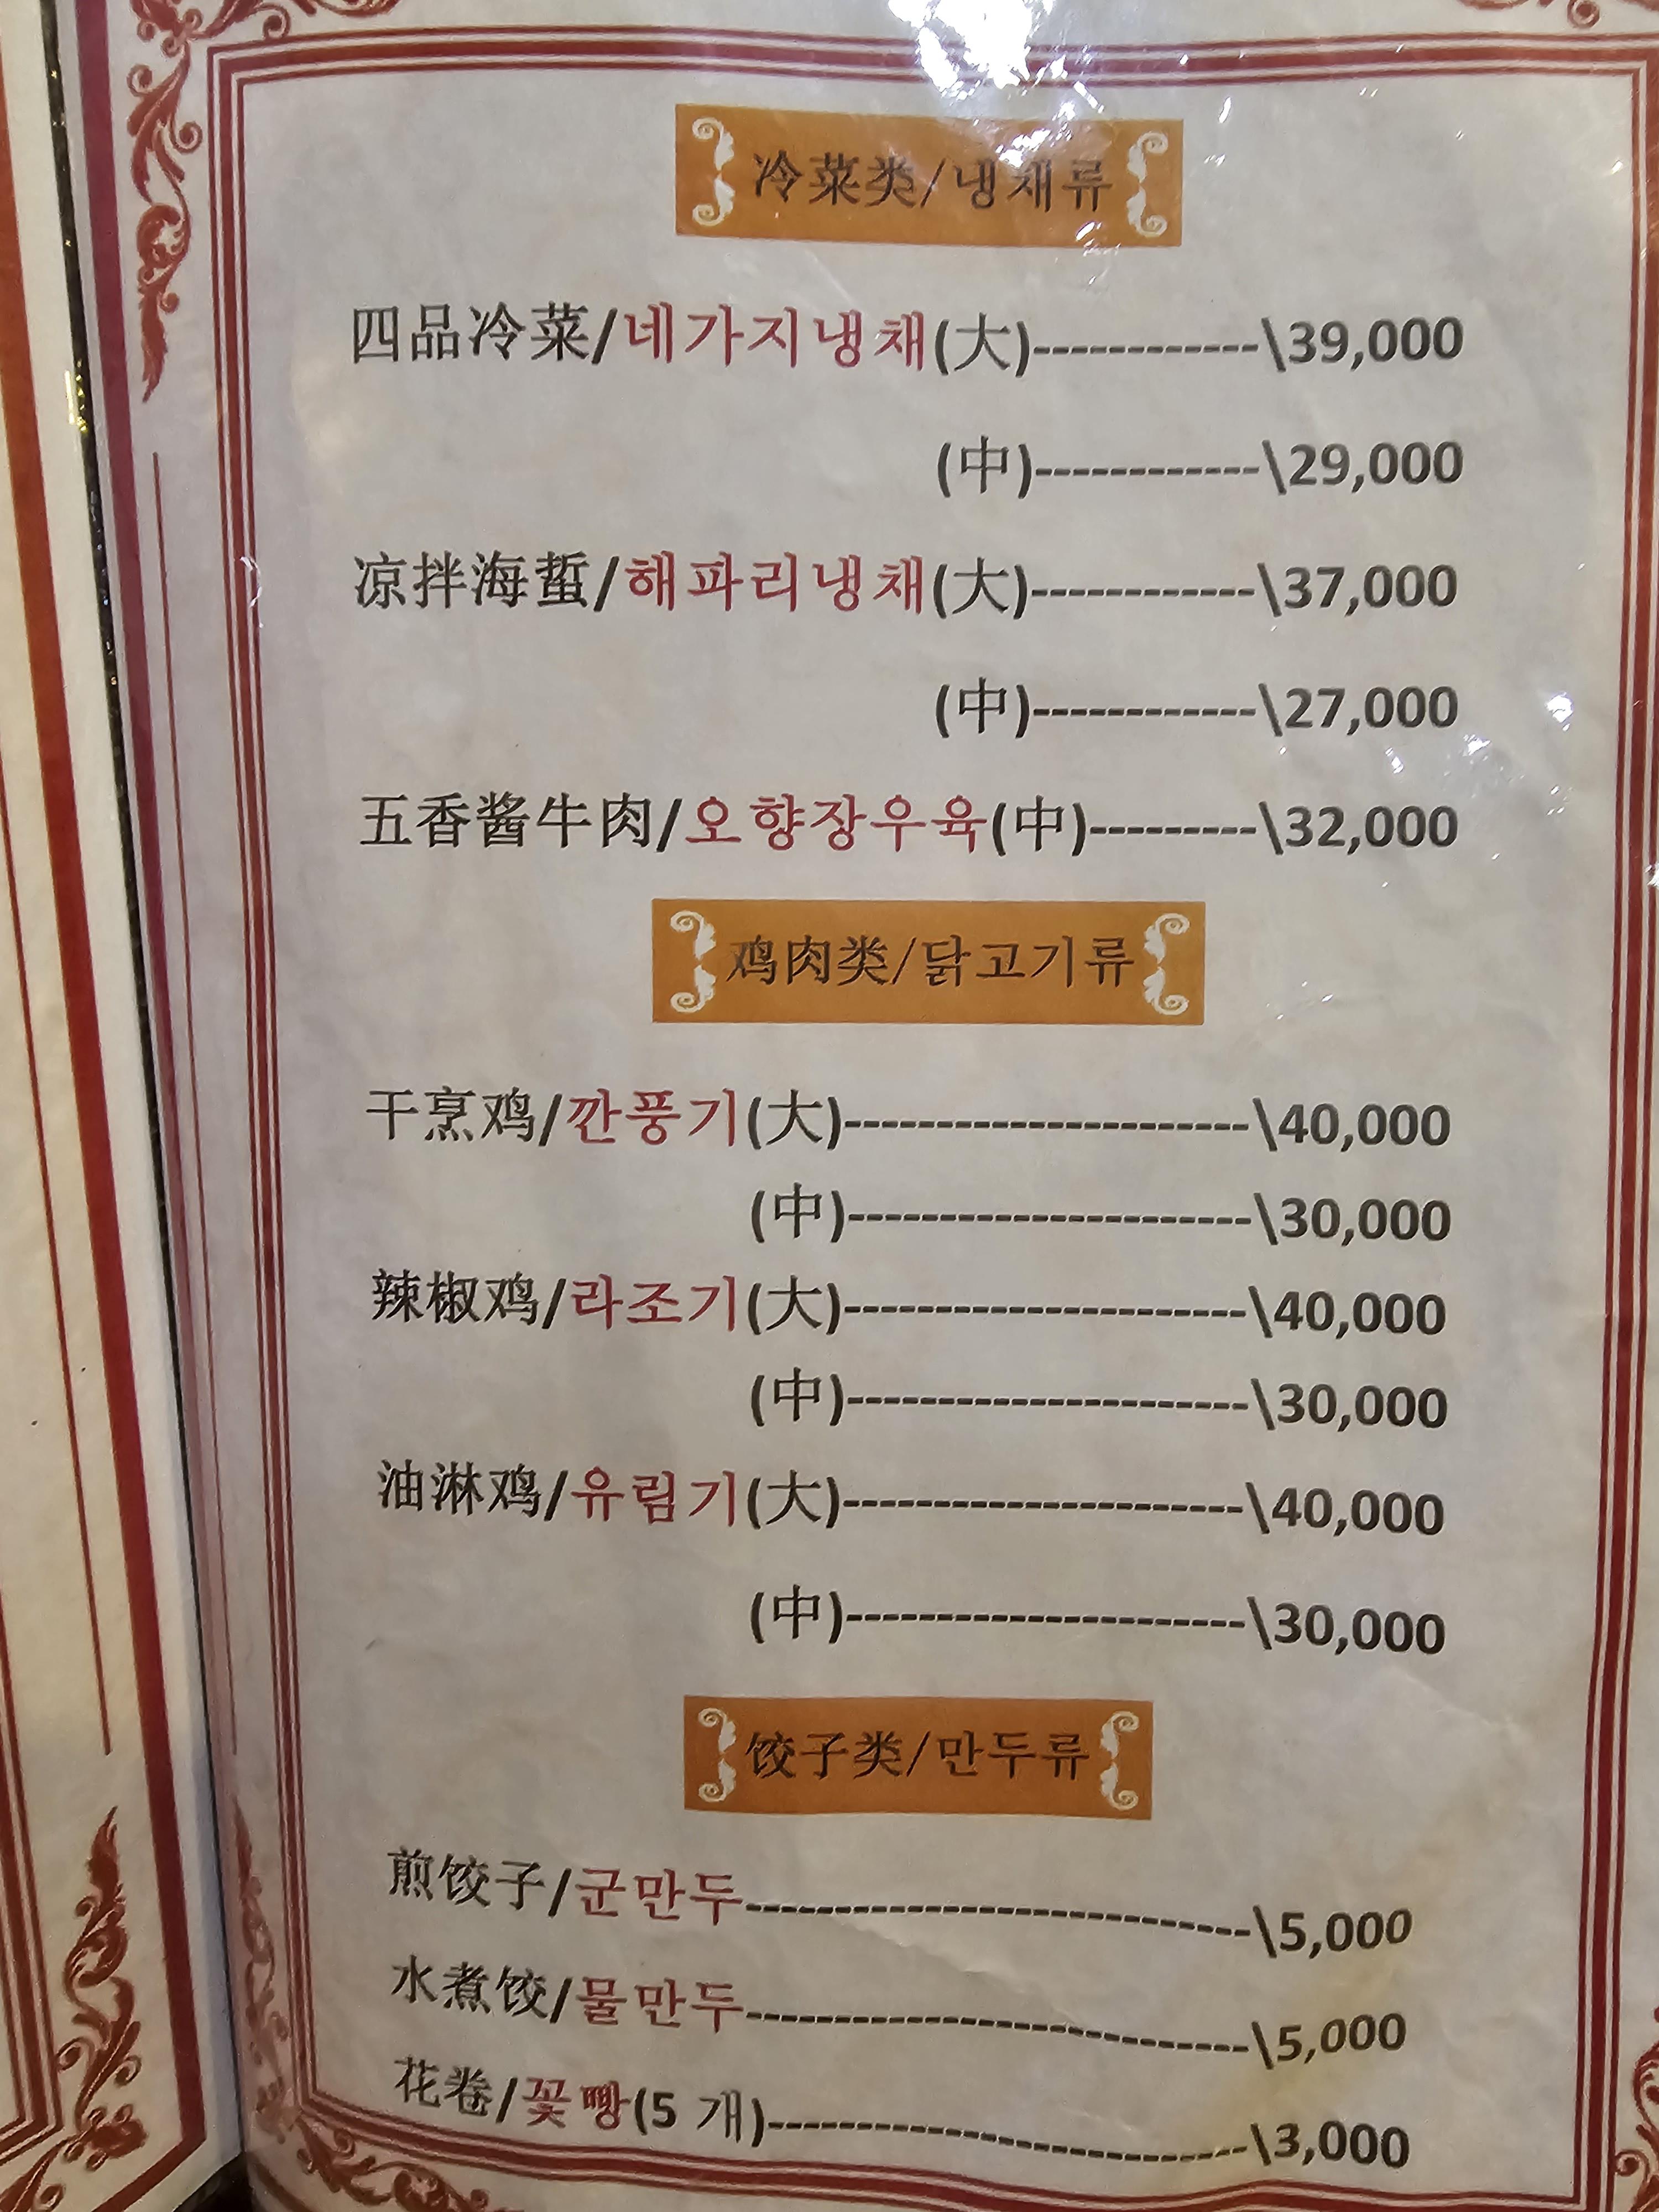 冷菜类/냉채류
四品冷菜/네가지냉채(大)------------\39,000
(中)------------\29,000
凉拌海蜇/해파리냉채(大)------------\37,000
(中)------------\27,000
五香酱牛肉/오향장우육(中)---------\32,000
鸡肉类/닭고기류
干烹鸡/깐풍기(大)----------------------\40,000
(中)----------------------\30,000
辣椒鸡/라조기(大)----------------------\40,000
(中)----------------------\30,000
油淋鸡/유림기(大)----------------------\40,000
(中)----------------------\30,000
饺子类/만두류
煎饺子/군만두---------------------------\5,000
水煮饺/물만두---------------------------\5,000
花卷/꽃빵(5 개)--------------------------\3,000